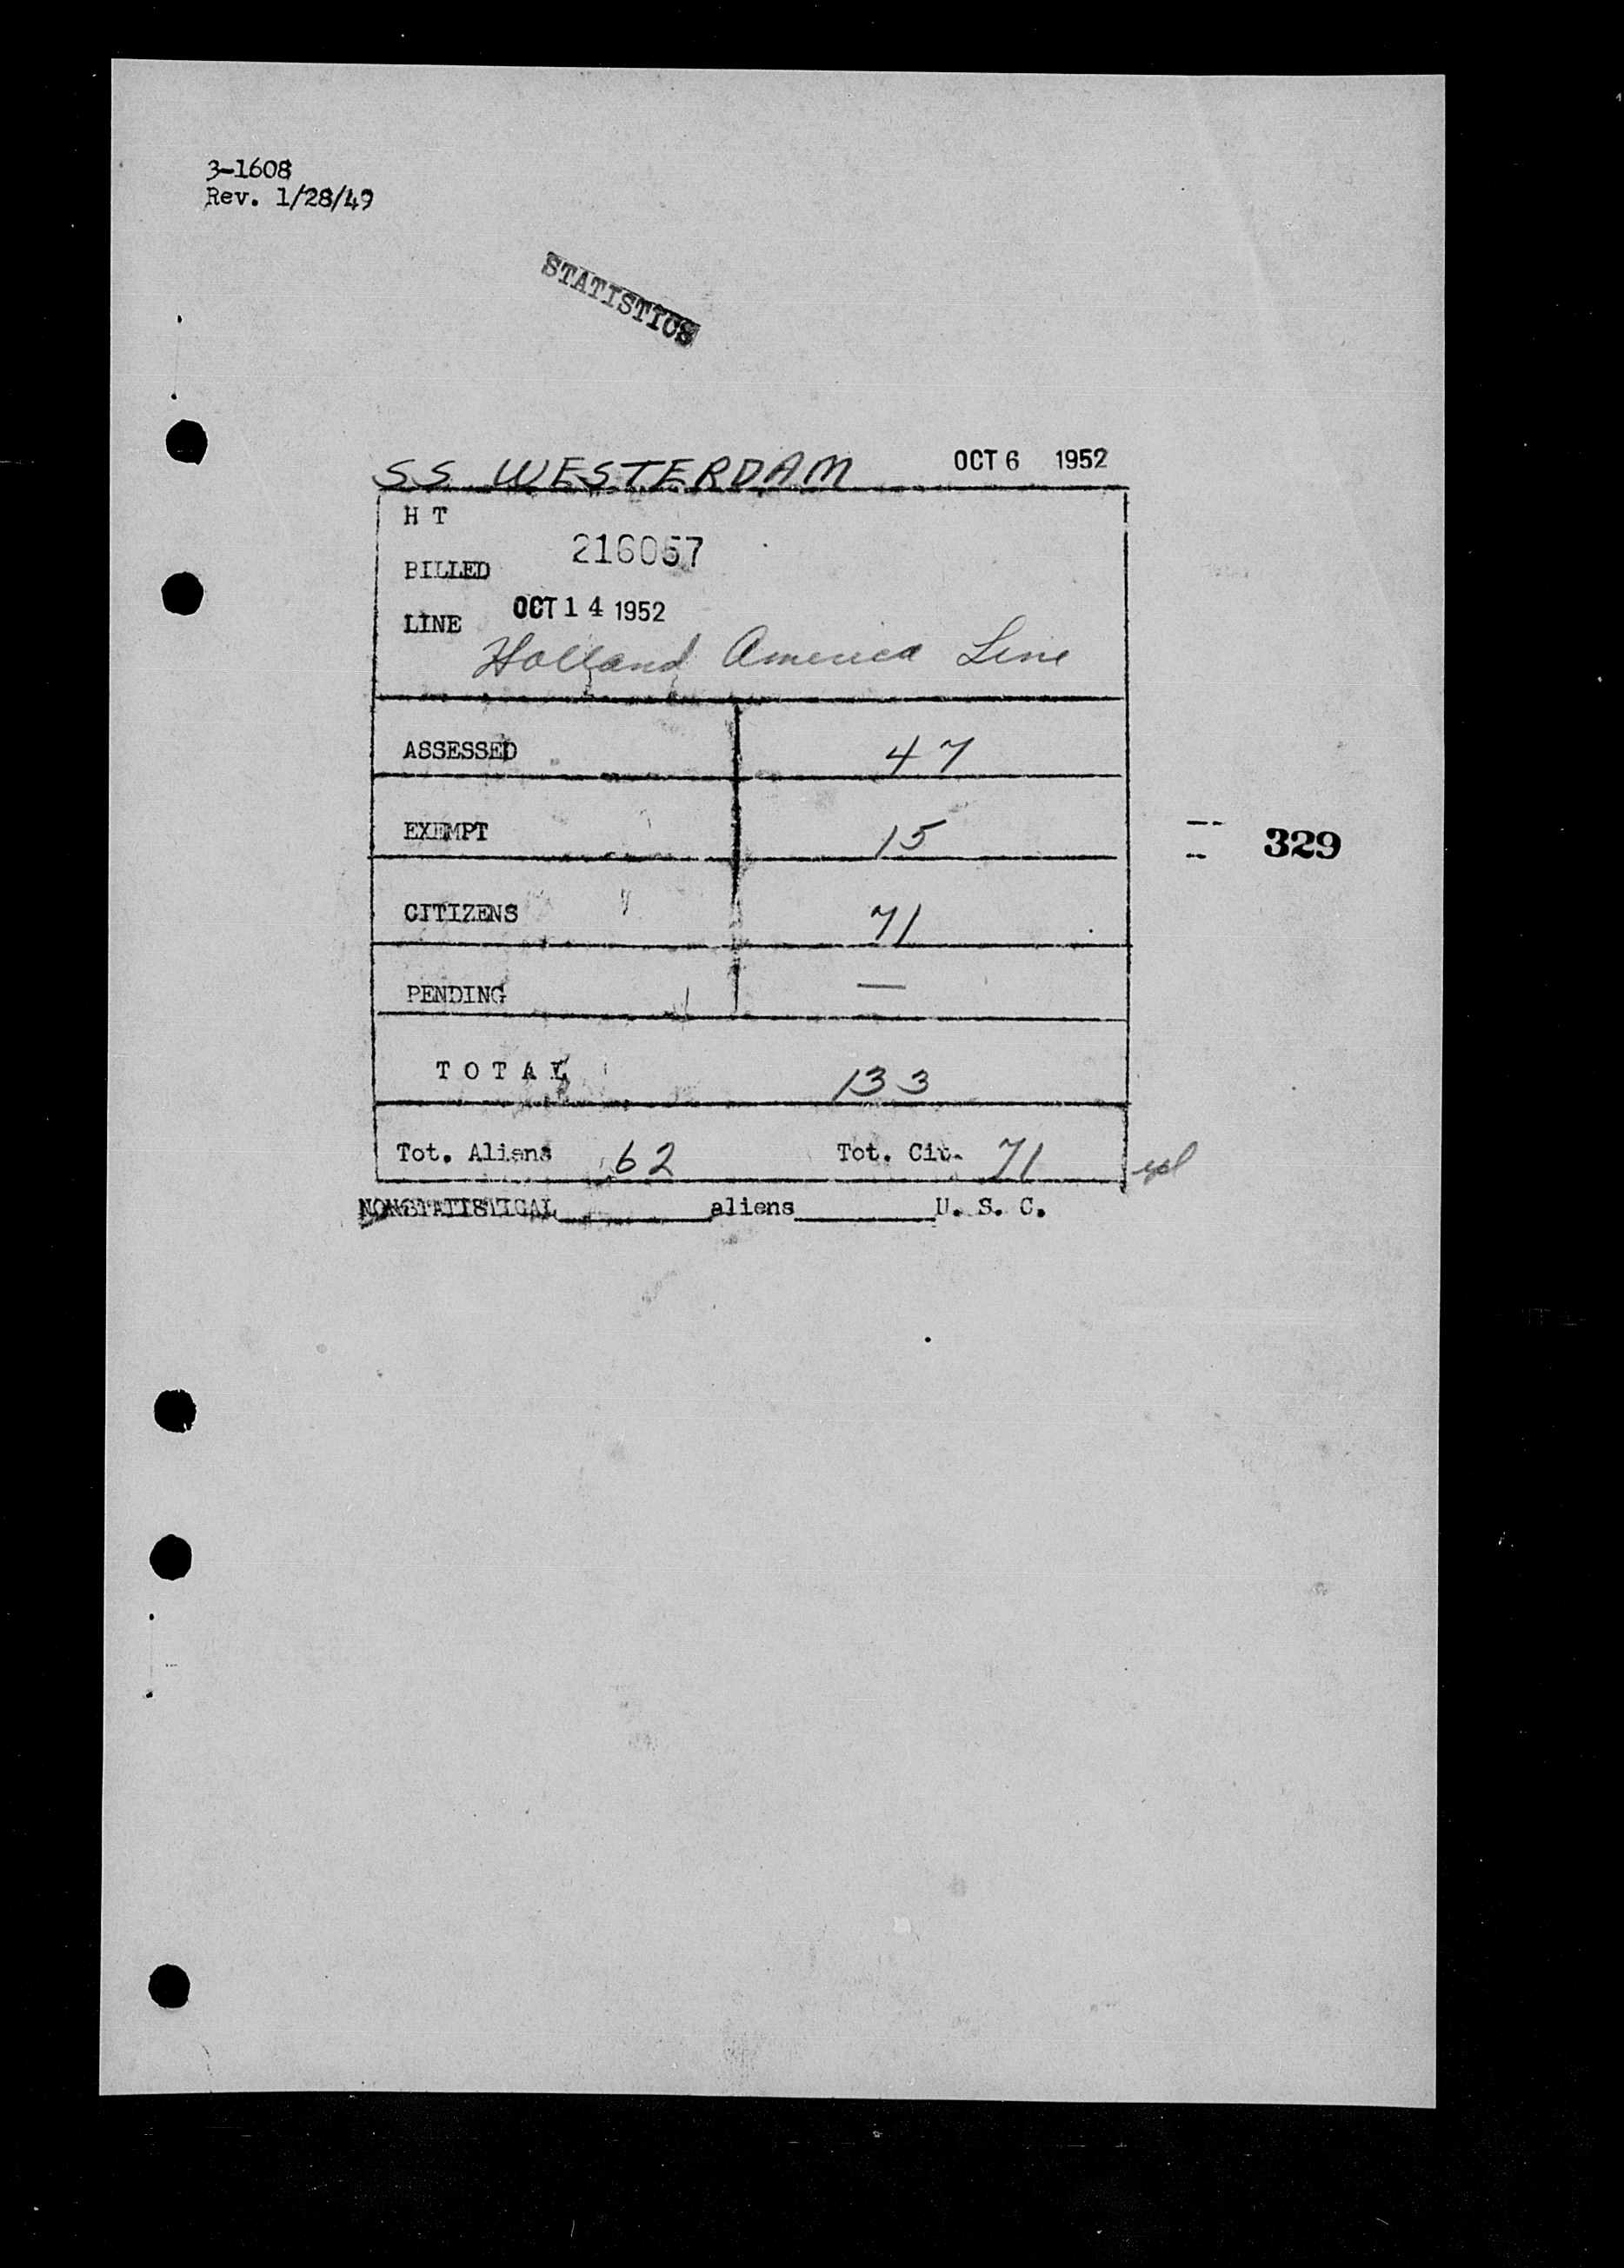 3-1608
Rev. 1/28/49
STATISTICS
SS WESTERDAM OCT 6 1952
H T
BILLED 216057
LINE OCT 14 1952
Holland America Line
ASSESSED 47
EXEMPT 15
329
CITIZENS 71
PENDING —
TOTAL 133
Tot. Aliens 62 Tot. Cit. 71
NONSTATISTICAL________aliens________U. S. C.